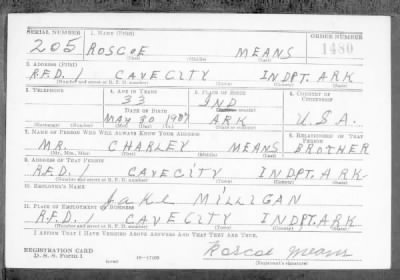 SERIAL NUMBER 1. NAME (Print) ORDER NUMBER
205 ROSCOE MEANS 1480
(First) (Middle) (Last)
2. ADDRESS (Print)
R.F.D. 1 CAVE CITY INDPT. ARK
(Number and street or R. F. D. number) (Town) (County) (State)
3. TELEPHONE 4. AGE IN YEARS 5. PLACE OF BIRTH 6. COUNTRY OF CITIZENSHIP
33 IND
DATE OF BIRTH (Town or county)
MAY 30 1907 ARK U.S.A.
(Exchange) (Number) (Mo.) (Day) (Yr.) (State or country)
7. NAME OF PERSON WHO WILL ALWAYS KNOW YOUR ADDRESS 8. RELATIONSHIP OF THAT PERSON
MR. CHARLEY MEANS BROTHER
(Mr., Mrs., Miss) (First) (Middle) (Last)
9. ADDRESS OF THAT PERSON
R.F.D. CAVE CITY INDPT. ARK
(Number and street or R. F. D. number) (Town) (County) (State)
10. EMPLOYER'S NAME
Jake MILLIGAN
11. PLACE OF EMPLOYMENT OR BUSINESS
R.F.D. 1 CAVE CITY INDPT. ARK
(Number and street or R. F. D. number) (Town) (County) (State)
I AFFIRM THAT I HAVE VERIFIED ABOVE ANSWERS AND THAT THEY ARE TRUE.
REGISTRATION CARD
D. S. S. Form 1 Roscoe Means
(over) 16—17105 (Registrant's signature)